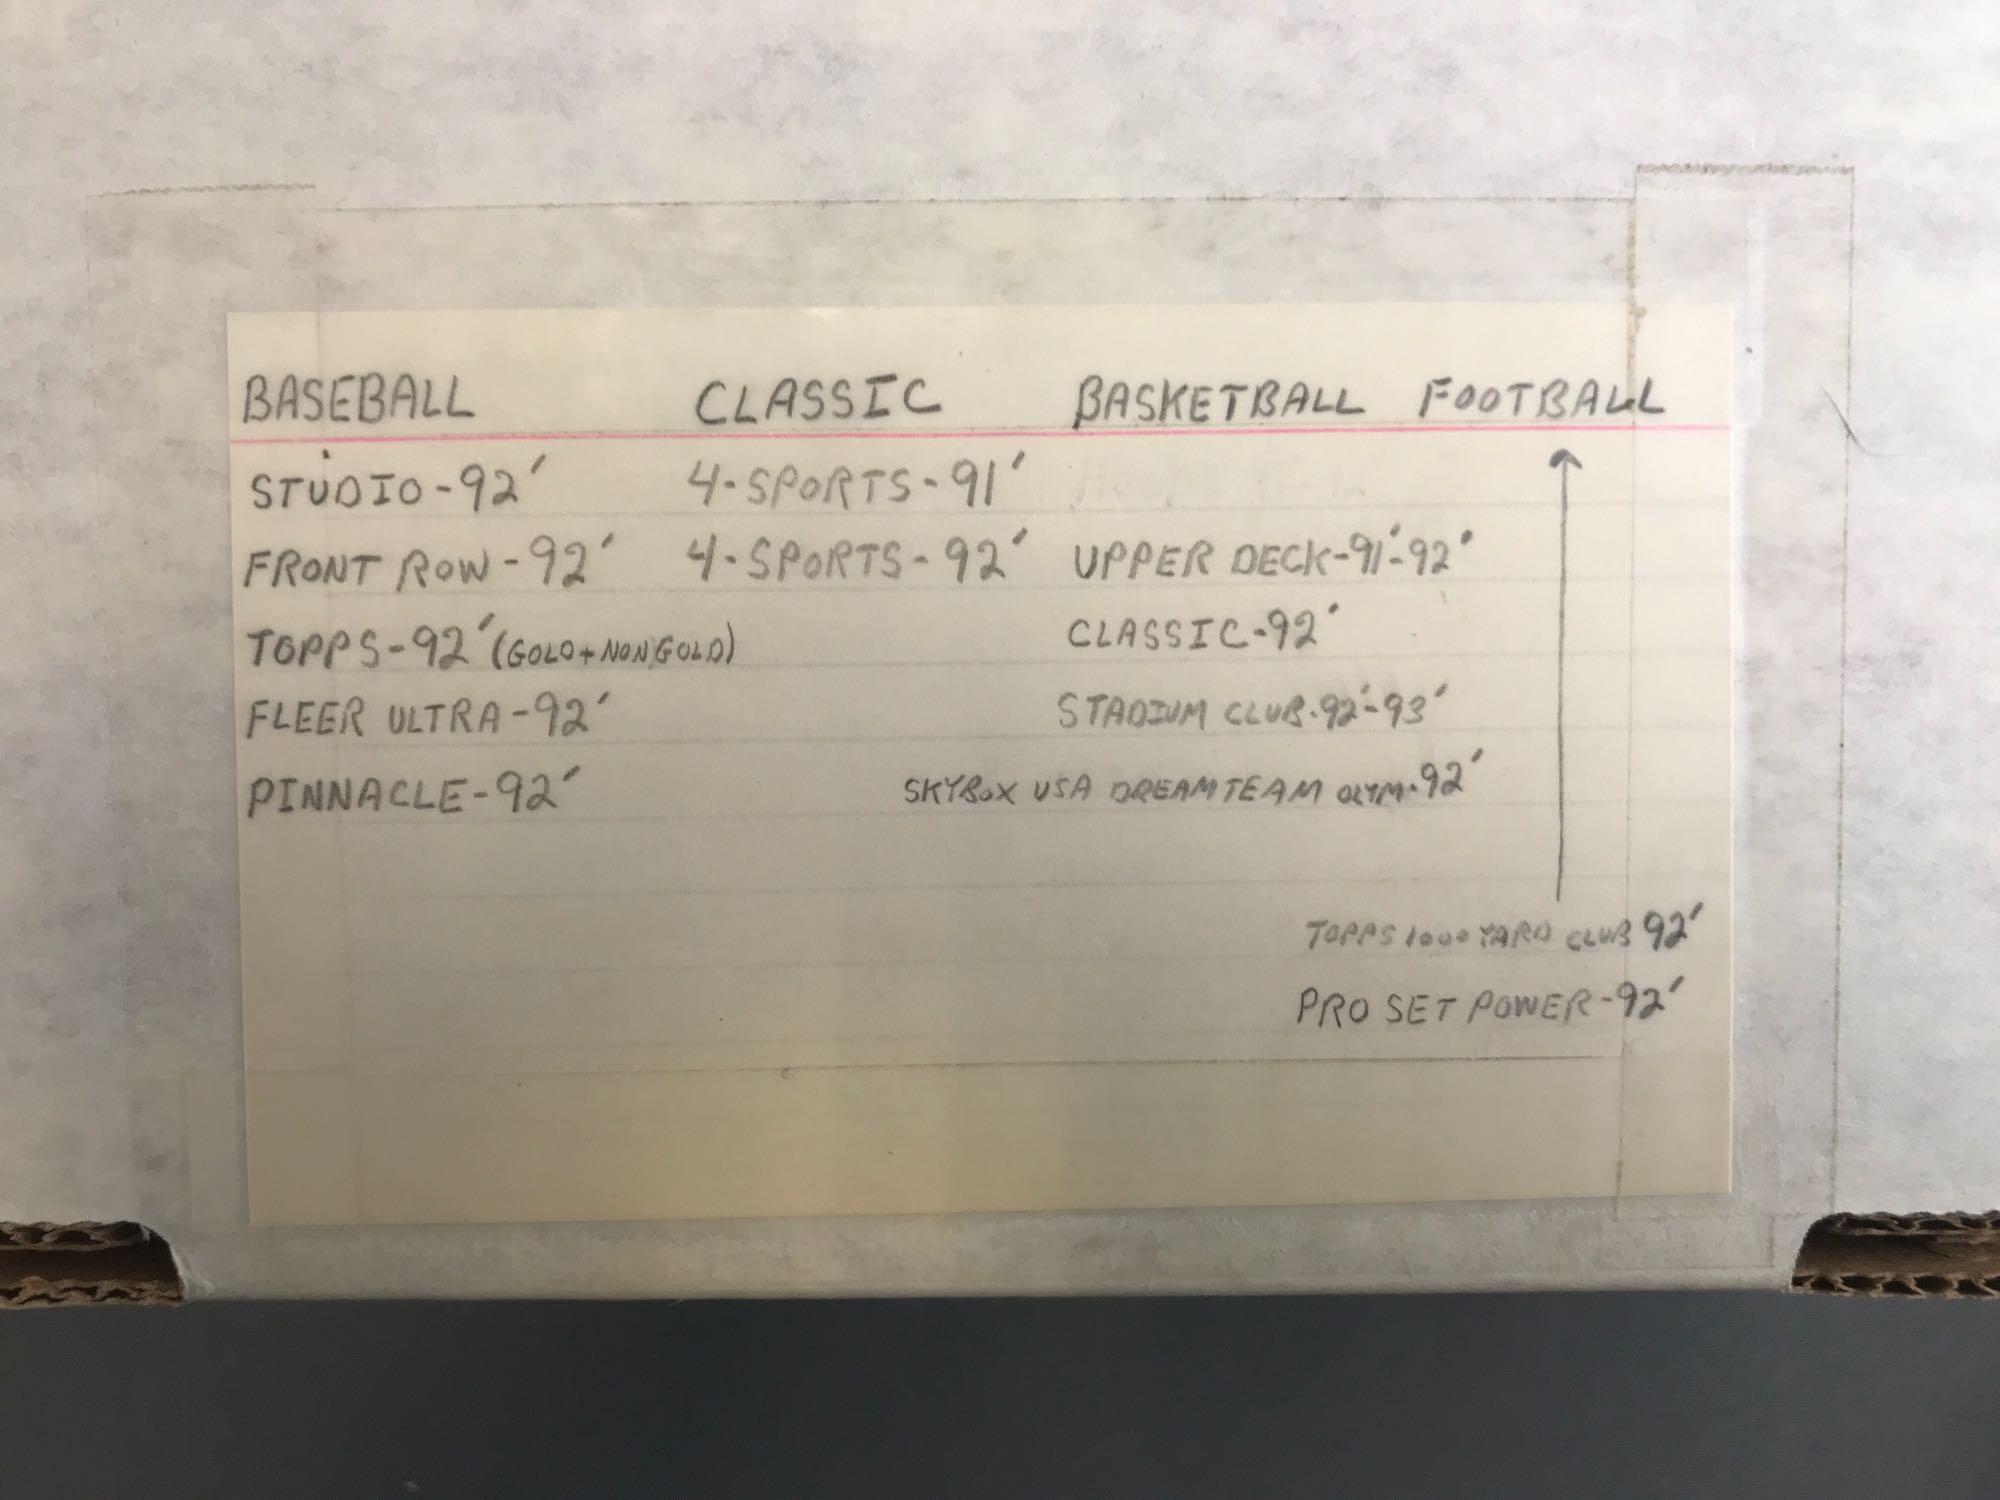 BASEBALL CLASSIC BASKETBALL FOOTBALL
STUDIO-92' 4-SPORTS-91'
FRONT ROW-92' 4-SPORTS-92' UPPER DECK-91'-92'
TOPPS-92' (GOLD+NONGOLD) CLASSIC-92'
FLEER ULTRA-92' STADIUM CLUB-92'-93'
PINNACLE-92' SKYBOX USA DREAMTEAM OLYM-92'
TOPPS 1000 YARD CLUB 92'
PRO SET POWER-92'